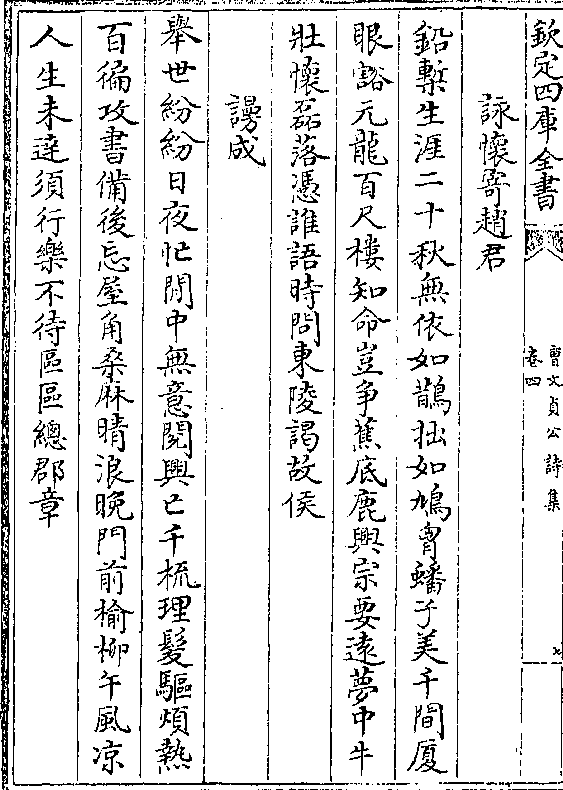 欽定四庫全書
曹文貞公詩集
卷四
七
詠懷寄趙君
鉛槧生涯二十秋無依如鵲拙如鳩胷蟠子美千間厦
眼豁元龍百尺樓知命豈争蕉底鹿興宗要遠夢中牛
壯懷磊落憑誰語時問東陵謁故侯
謾成
舉世紛紛日夜忙閒中無意閲興亡千梳理髮驅煩熱
百徧攻書備後忘屋角桑麻晴浪晚門前榆柳午風凉
人生未逹須行樂不待區區總郡章